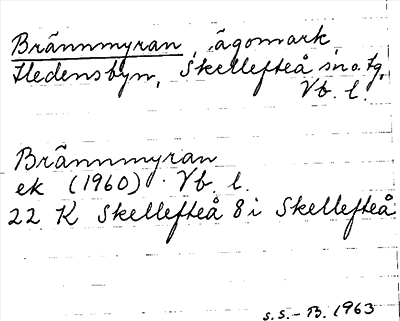 Brännmyran, ägomark,
Hedensbyn, Skellefteå sn o. tg,
Vb. l.
Brännmyran
ek (1960). Vb. l.
22 K Skellefteå 8 i Skellefteå
S.S.-B. 1963